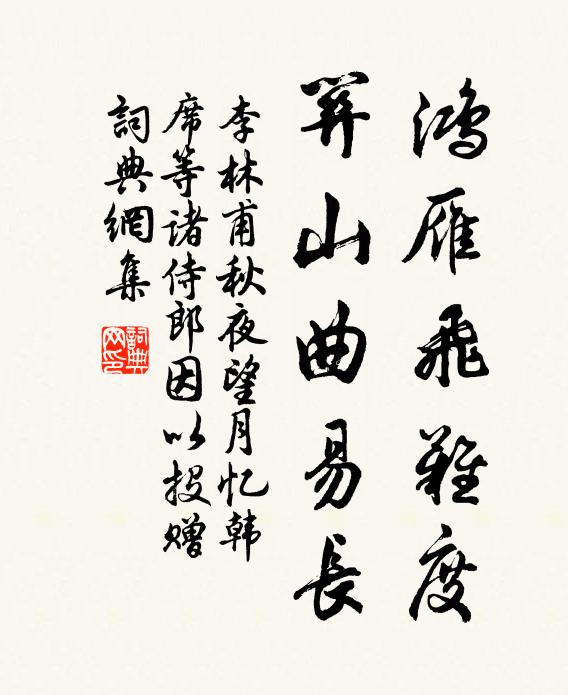 鴻雁飛難度
關山曲易長
李林甫秋夜望月忆韩
席等諸侍郎因以投赠
詞典網集
詞典网印